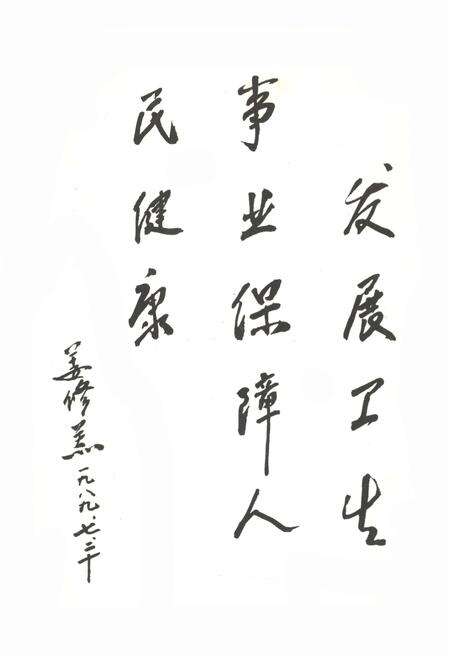 发展卫生
事业保障人
民健康
姜修羔一九八九、七、二十